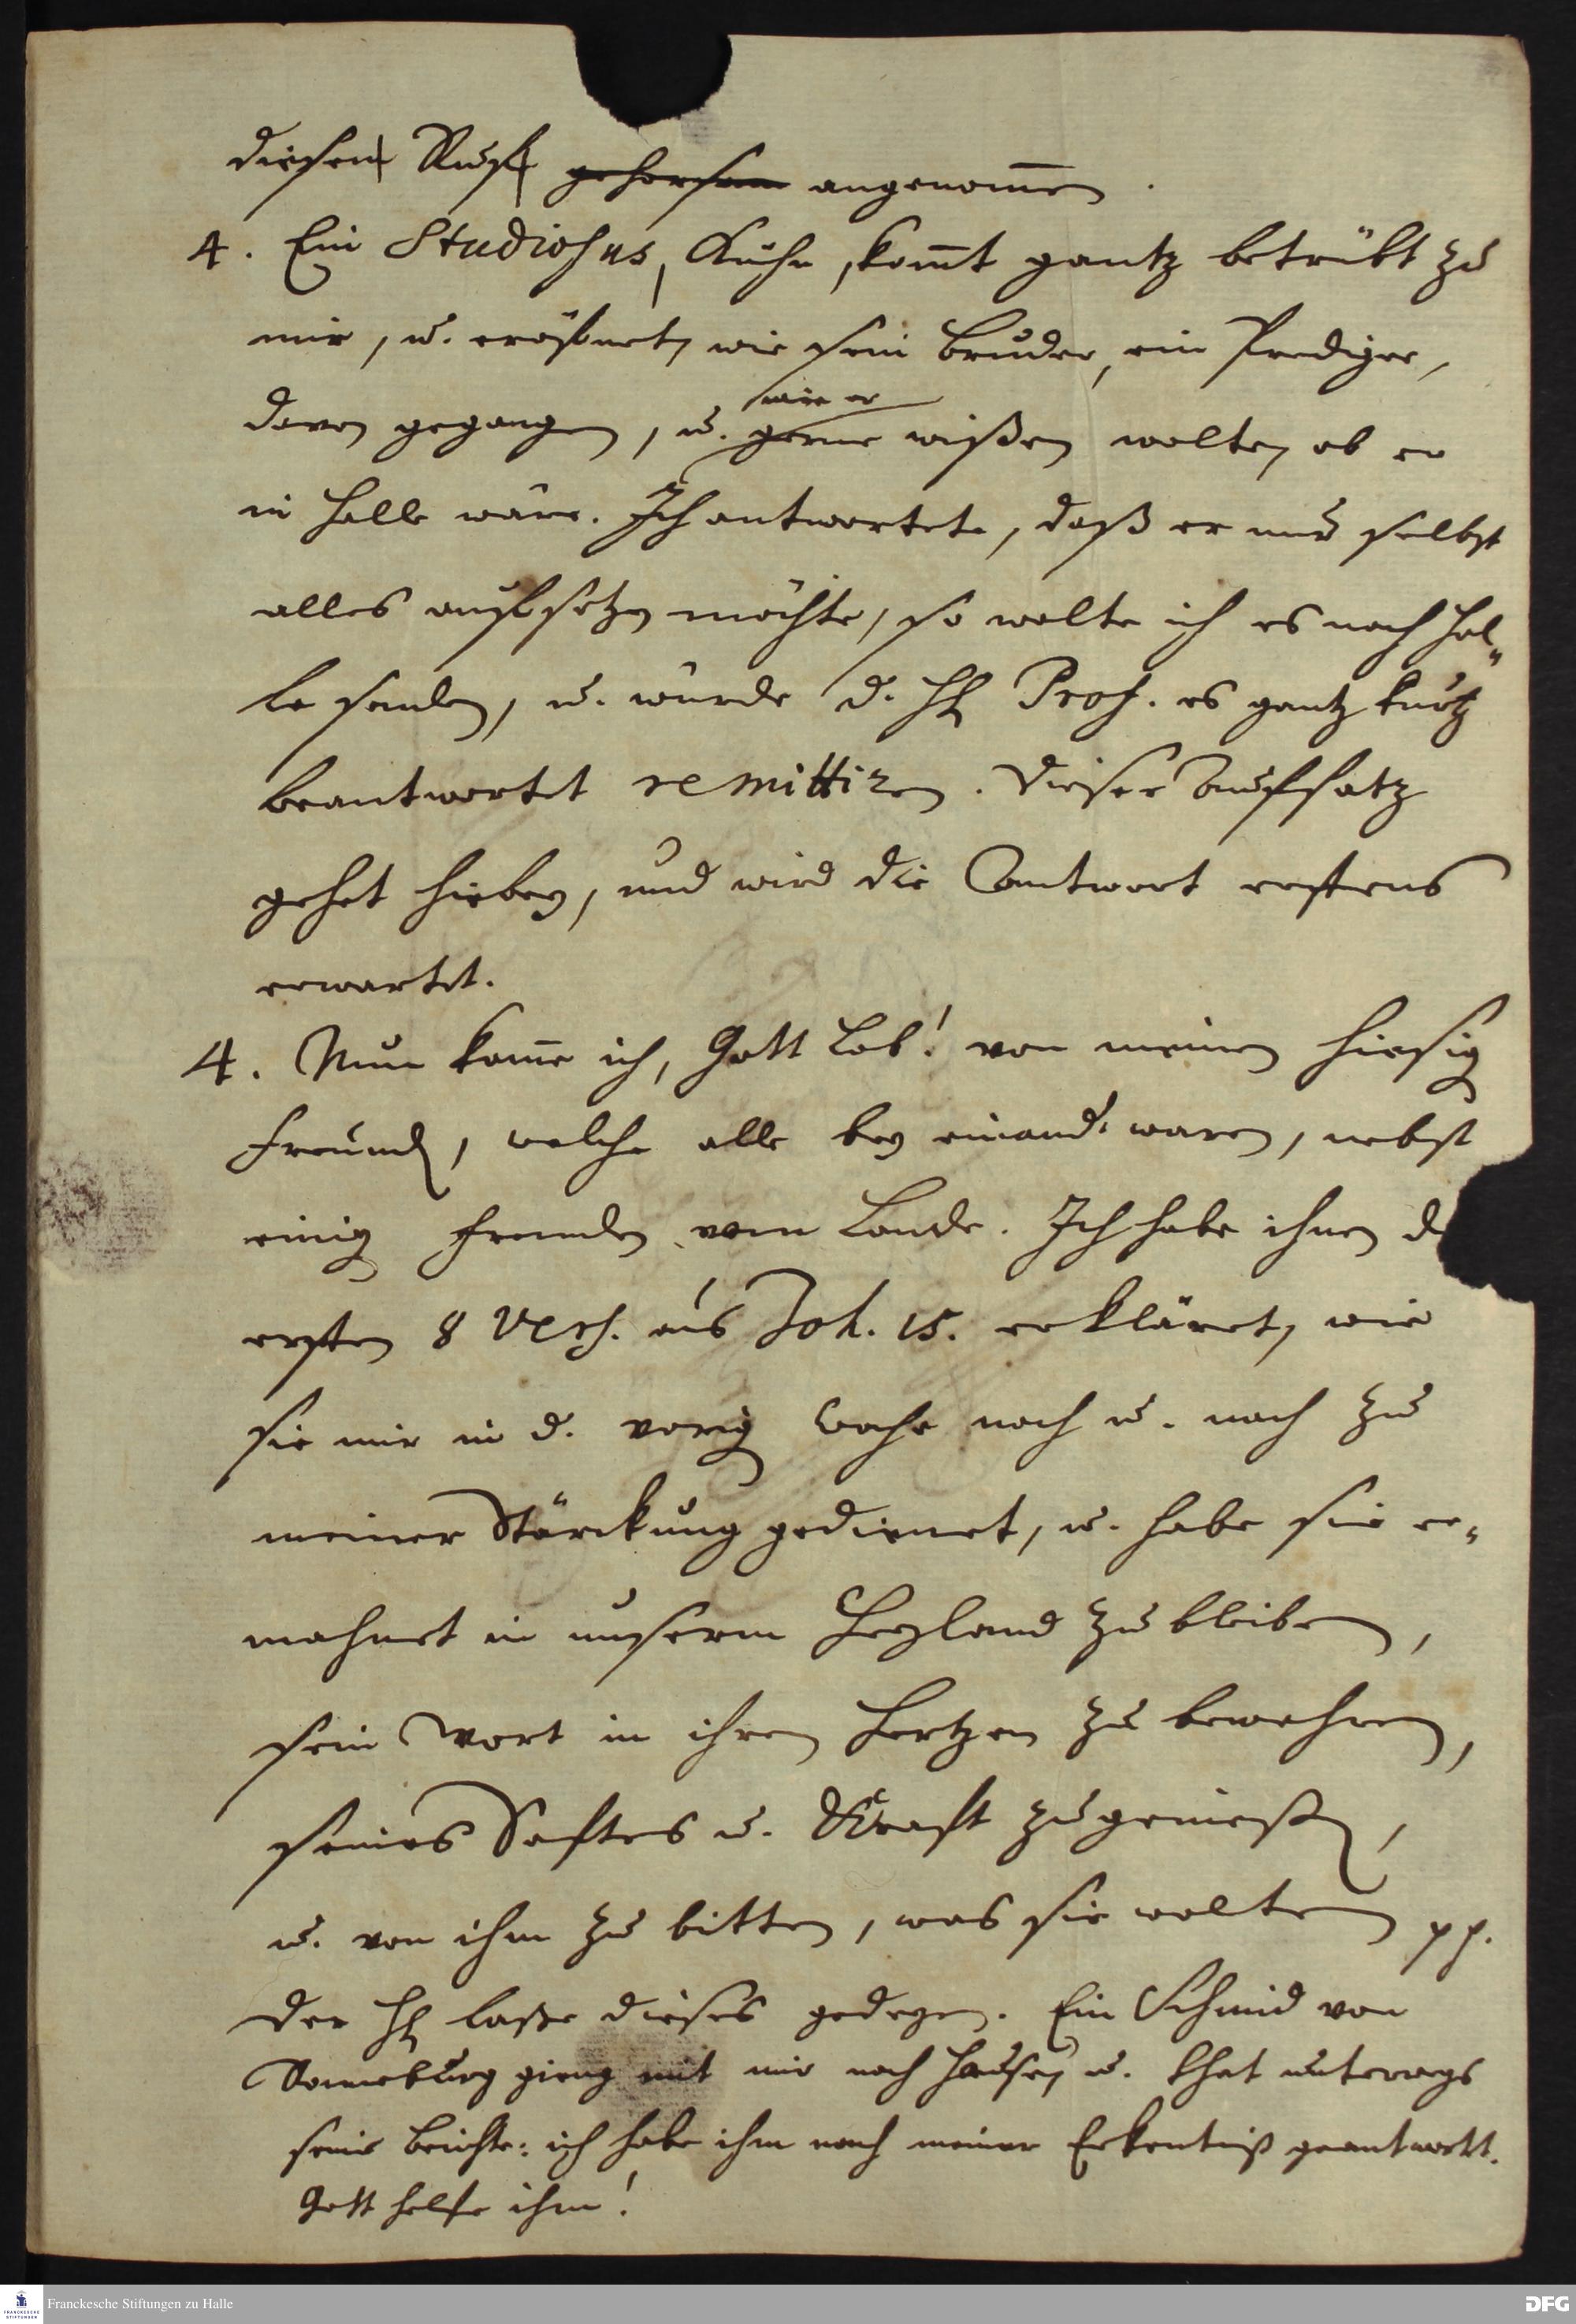 diesen Ruf gehorsam angenom̅en.
4. Ein Studiosus, Kuhn, kom̅t gantz betrübt zu
mir, u. eröfnet, wie sein Bruder, ein Prediger,
wie er
davon gegangen, u. gerne wißen wolte, ob er
in Halle wäre. Ich antwortete, daß er nur selbst
alles aufsetzen möchte, so wolte ich es nach Hal„
le senden, u. würde d. H Prof. es gantz kurtz
beantwortet remittiren. Dieser Aufsatz
gehet hiebey, und wird die Antwort erstens
erwartet.
4. Nun kom̅e ich, Gott Lob! von meinen hiesig
Freunden, welche alle bey einand. waren, nebst
einig Fremden vom Lande. Ich habe ihnen d
ersten 8 Vers. aus Joh. 15. erkläret, wie
sie mir in d. vorig Woche nach u. nach zu
meiner Stärckung gedienet, u. habe sie er„
mahnet in unserm Heyland zu bleiben,
sein Wort in ihren Hertzen zu bewahren,
seines Saftes u. Kraft zu genießen,
u. von ihm zu bitten, was sie wolten pp.
Der H laße dieses gedeyen. Ein Schmid von
Sonneburg gieng mit mir nach Hause, u. that unterwegs
seine Beichte: ich habe ihm nach meiner Erkentniß geantwort.
Gott helfe ihm!
Franckesche Stiftungen zu Halle
FRANCKESCHE STIFTUNGEN
DFG